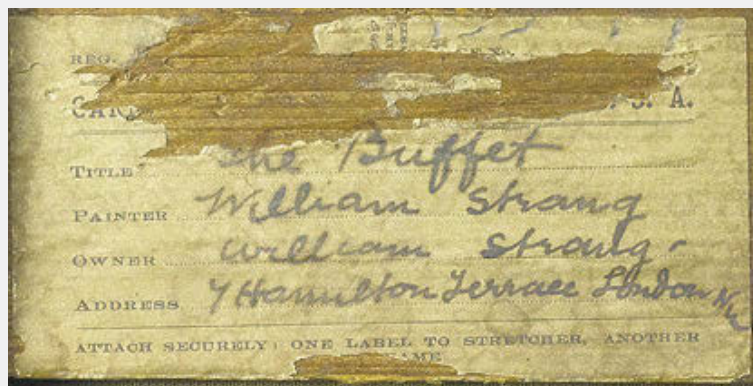 REG.
CAR S. A.
TITLE The Buffet
PAINTER William Strang
OWNER William Strang
ADDRESS 7 Hamilton Terrace London NW
ATTACH SECURELY: ONE LABEL TO STRETCHER, ANOTHER
AME